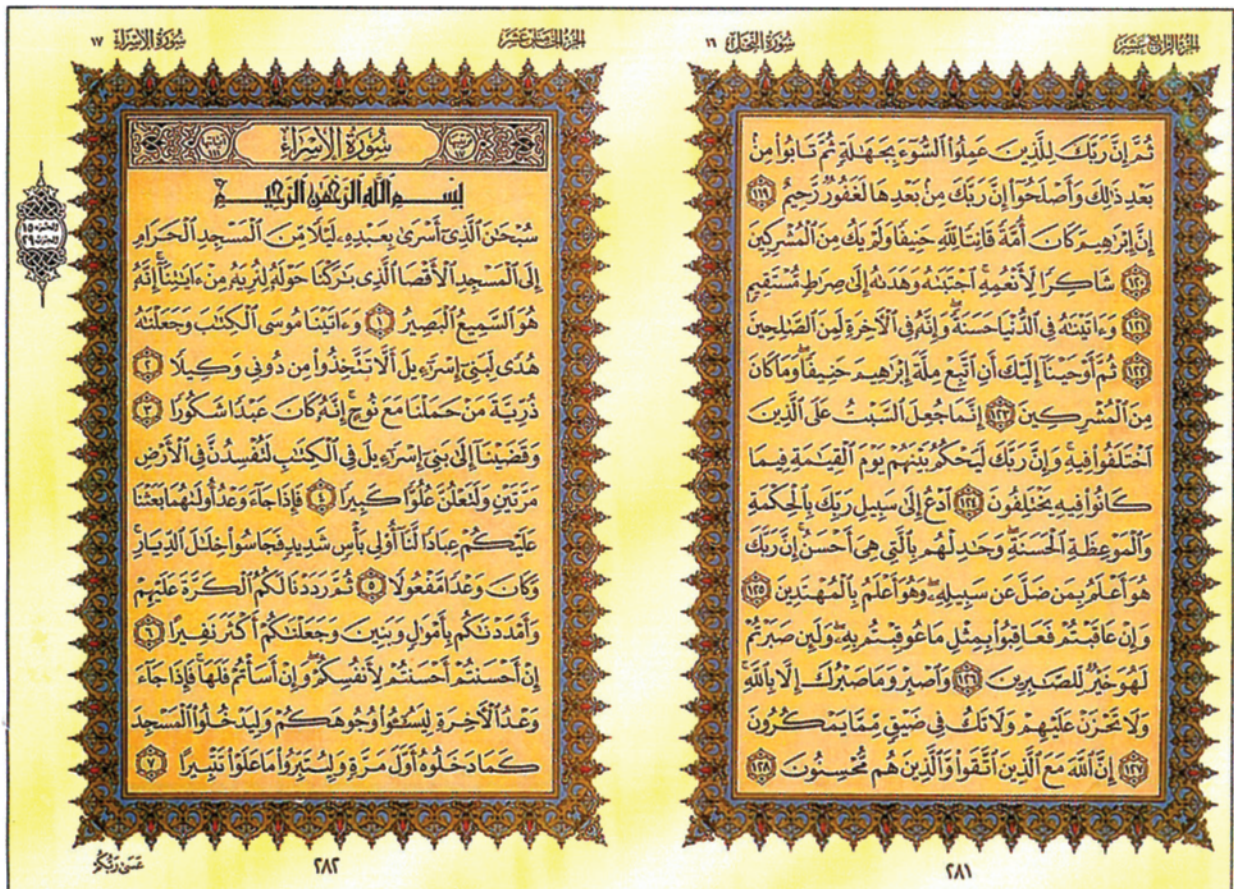 الجزء الرابع عشر
سورة النحل ١٦
ثُمَّ إِنَّ رَبَّكَ لِلَّذِينَ عَمِلُوا۟ ٱلسُّوٓءَ بِجَهَٰلَةٍ ثُمَّ تَابُوا۟ مِنۢ
بَعْدِ ذَٰلِكَ وَأَصْلَحُوٓا۟ إِنَّ رَبَّكَ مِنۢ بَعْدِهَا لَغَفُورٌ رَّحِيمٌ ١١٩
إِنَّ إِبْرَٰهِيمَ كَانَ أُمَّةً قَانِتًا لِّلَّهِ حَنِيفًا وَلَمْ يَكُ مِنَ ٱلْمُشْرِكِينَ
١٢٠ شَاكِرًا لِّأَنْعُمِهِ ۚ ٱجْتَبَىٰهُ وَهَدَىٰهُ إِلَىٰ صِرَٰطٍ مُّسْتَقِيمٍ
١٢١ وَءَاتَيْنَٰهُ فِى ٱلدُّنْيَا حَسَنَةً ۖ وَإِنَّهُۥ فِى ٱلْءَاخِرَةِ لَمِنَ ٱلصَّٰلِحِينَ
١٢٢ ثُمَّ أَوْحَيْنَآ إِلَيْكَ أَنِ ٱتَّبِعْ مِلَّةَ إِبْرَٰهِيمَ حَنِيفًا ۖ وَمَا كَانَ
مِنَ ٱلْمُشْرِكِينَ ١٢٣ إِنَّمَا جُعِلَ ٱلسَّبْتُ عَلَى ٱلَّذِينَ
ٱخْتَلَفُوا۟ فِيهِ ۚ وَإِنَّ رَبَّكَ لَيَحْكُمُ بَيْنَهُمْ يَوْمَ ٱلْقِيَٰمَةِ فِيمَا
كَانُوا۟ فِيهِ يَخْتَلِفُونَ ١٢٤ ٱدْعُ إِلَىٰ سَبِيلِ رَبِّكَ بِٱلْحِكْمَةِ
وَٱلْمَوْعِظَةِ ٱلْحَسَنَةِ ۖ وَجَٰدِلْهُم بِٱلَّتِى هِىَ أَحْسَنُ ۚ إِنَّ رَبَّكَ
هُوَ أَعْلَمُ بِمَن ضَلَّ عَن سَبِيلِهِۦ ۖ وَهُوَ أَعْلَمُ بِٱلْمُهْتَدِينَ ١٢٥
وَإِنْ عَاقَبْتُمْ فَعَاقِبُوا۟ بِمِثْلِ مَا عُوقِبْتُم بِهِۦ ۖ وَلَئِن صَبَرْتُمْ
لَهُوَ خَيْرٌ لِّلصَّٰبِرِينَ ١٢٦ وَٱصْبِرْ وَمَا صَبْرُكَ إِلَّا بِٱللَّهِ ۚ
وَلَا تَحْزَنْ عَلَيْهِمْ وَلَا تَكُ فِى ضَيْقٍ مِّمَّا يَمْكُرُونَ
١٢٧ إِنَّ ٱللَّهَ مَعَ ٱلَّذِينَ ٱتَّقَوا۟ وَّٱلَّذِينَ هُم مُّحْسِنُونَ ١٢٨
٢٨١
الجزء الخامس عشر
سورة الإسراء ١٧
ترتيبها ١٧ سُورَةُ الإِسْرَاءِ آياتها ١١١
بِسْمِ ٱللَّهِ ٱلرَّحْمَٰنِ ٱلرَّحِيمِ
سُبْحَٰنَ ٱلَّذِىٓ أَسْرَىٰ بِعَبْدِهِۦ لَيْلًا مِّنَ ٱلْمَسْجِدِ ٱلْحَرَامِ
إِلَى ٱلْمَسْجِدِ ٱلْأَقْصَا ٱلَّذِى بَٰرَكْنَا حَوْلَهُۥ لِنُرِيَهُۥ مِنْ ءَايَٰتِنَآ ۚ إِنَّهُۥ
هُوَ ٱلسَّمِيعُ ٱلْبَصِيرُ ١ وَءَاتَيْنَا مُوسَى ٱلْكِتَٰبَ وَجَعَلْنَٰهُ
هُدًى لِّبَنِىٓ إِسْرَٰٓءِيلَ أَلَّا تَتَّخِذُوا۟ مِن دُونِى وَكِيلًا ٢
ذُرِّيَّةَ مَنْ حَمَلْنَا مَعَ نُوحٍ ۚ إِنَّهُۥ كَانَ عَبْدًا شَكُورًا ٣
وَقَضَيْنَآ إِلَىٰ بَنِىٓ إِسْرَٰٓءِيلَ فِى ٱلْكِتَٰبِ لَتُفْسِدُنَّ فِى ٱلْأَرْضِ
مَرَّتَيْنِ وَلَتَعْلُنَّ عُلُوًّا كَبِيرًا ٤ فَإِذَا جَآءَ وَعْدُ أُولَىٰهُمَا بَعَثْنَا
عَلَيْكُمْ عِبَادًا لَّنَآ أُو۟لِى بَأْسٍ شَدِيدٍ فَجَاسُوا۟ خِلَٰلَ ٱلدِّيَارِ ۚ
وَكَانَ وَعْدًا مَّفْعُولًا ٥ ثُمَّ رَدَدْنَا لَكُمُ ٱلْكَرَّةَ عَلَيْهِمْ
وَأَمْدَدْنَٰكُم بِأَمْوَٰلٍ وَبَنِينَ وَجَعَلْنَٰكُمْ أَكْثَرَ نَفِيرًا ٦
إِنْ أَحْسَنتُمْ أَحْسَنتُمْ لِأَنفُسِكُمْ ۖ وَإِنْ أَسَأْتُمْ فَلَهَا ۚ فَإِذَا جَآءَ
وَعْدُ ٱلْءَاخِرَةِ لِيَسُۥٓـُٔوا۟ وُجُوهَكُمْ وَلِيَدْخُلُوا۟ ٱلْمَسْجِدَ
كَمَا دَخَلُوهُ أَوَّلَ مَرَّةٍ وَلِيُتَبِّرُوا۟ مَا عَلَوْا۟ تَتْبِيرًا ٧
الجزء ١٥
الحزب ٢٩
٢٨٢
عَسَىٰ رَبُّكُمْ